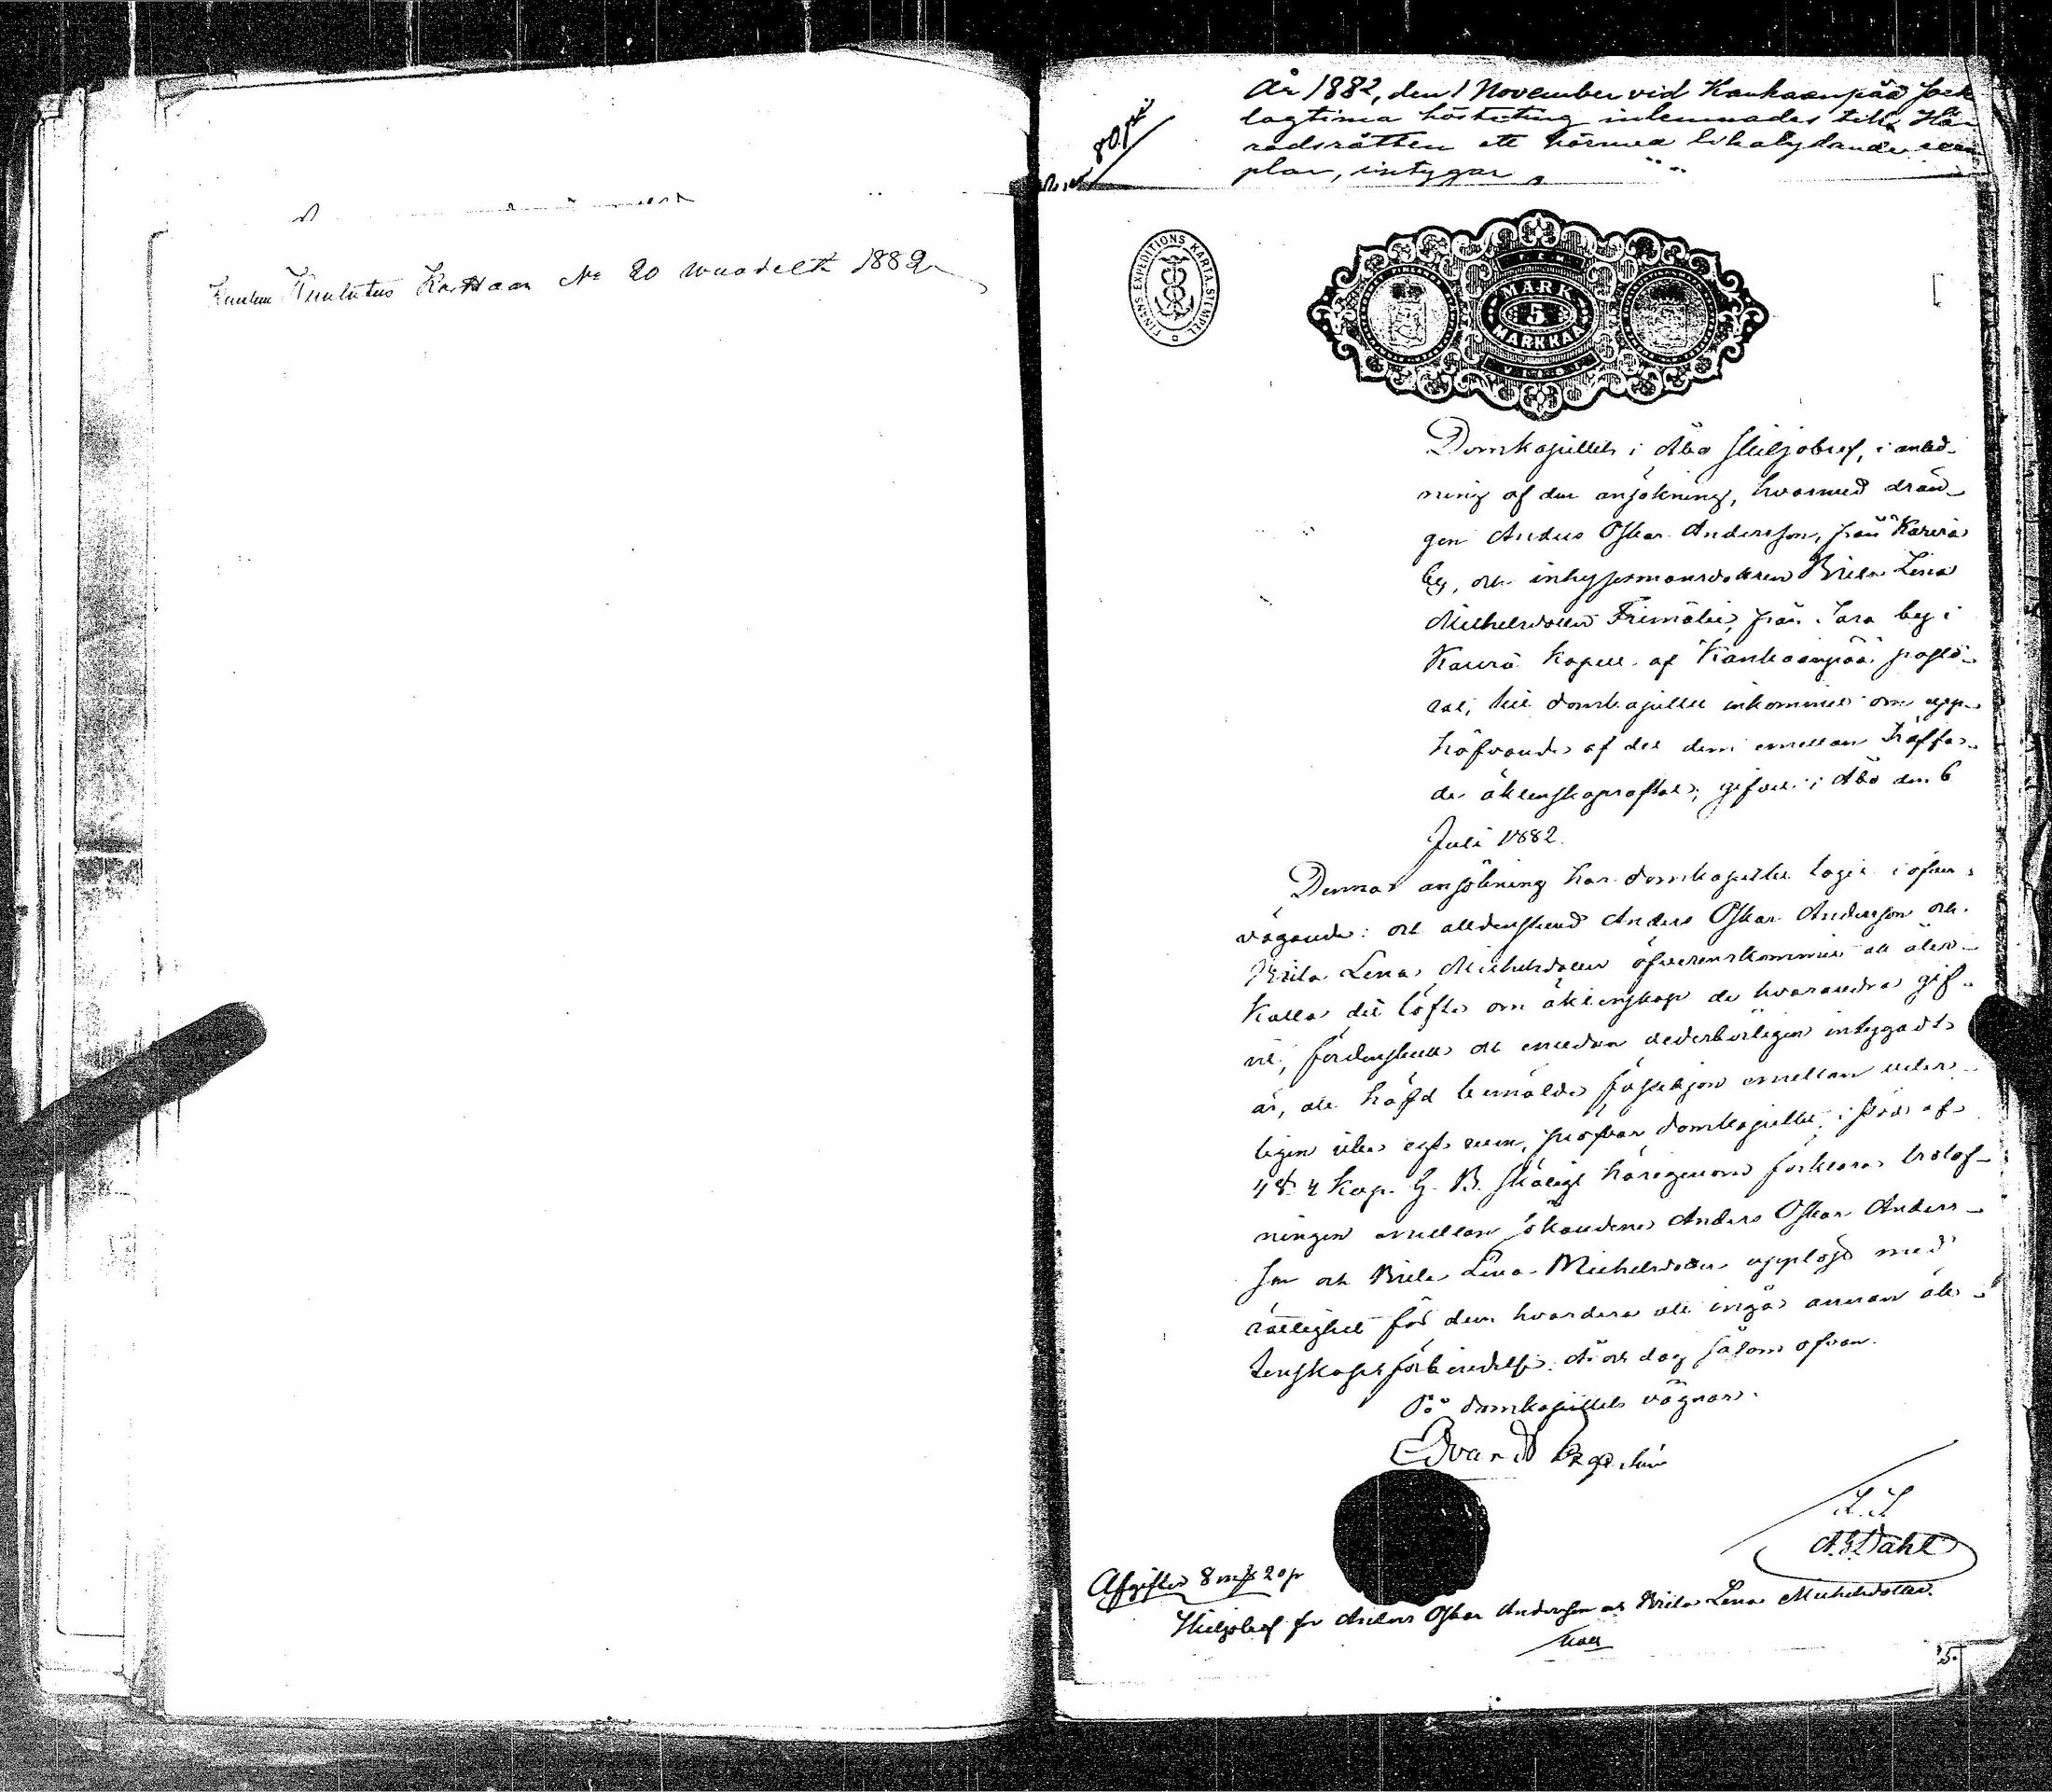 Kuulutus Karttaan No 20 vuodelta 1882
80 p:i
År 1882, den 1 November vid Kankaanpää sock
lagtima hösteting inlemnades till Hä
radsrätten ett härmed likalydande exem
plar, intygar
FINANS EXPEDITIONS KARTA STEMPEL
FEM
MARK
5
MARKKAA
VIISI
Domkapitlets i Åbo Skiljobref, i anled-
ning af den ansökning, hvarmed drän-
gen Anders Oskar Andersson, från Karvia
by, och inhysesmansdottren Brita Lena
Michelsdotter Frimälie, från Sara by i
Karvia kapell af Kankaanpää pasto-
rat, till domkapitlet inkommit om upp-
häfvande af det dem emellan träffa-
de äktenskapsaftal; gifvet i Åbo den 6
Juli 1882.
Denna ansökning har domkapitlet tagit i öfver-
vägande: och alldenstund Anders Oskar Andersson och
Brita Lena Michelsdotter öfverenskommit att åter-
kalla det löfte om äktenskap de hvarandra gif-
vit, fördenskull och emedan vederbörligen intygadt
är, att häfd bemälde fästehjon emellan veter-
ligen icke egt rum, pröfvar domkapitlet, i stöd af
4 § 4 kap. G. B. skäligt härigenom förklara trolof-
ningen emellan sökandene Anders Oskar Anders-
son och Brita Lena Michelsdotter upplöst med
rättighet för dem hvardera att ingå annan äk-
tenskapsförbindelse. År och dag såsom ofvan.
På domkapitlets vägnar:
Edvard Bergelin
A. G. Dahl
Afgifter 8 mk 20 p
Skiljobref för Anders Oskar Andersson och Brita Lena Michelsdotter.
5.